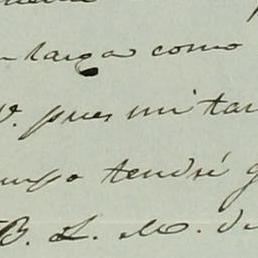 larga como
V. pues mi tar
tendré
B. L. M. de